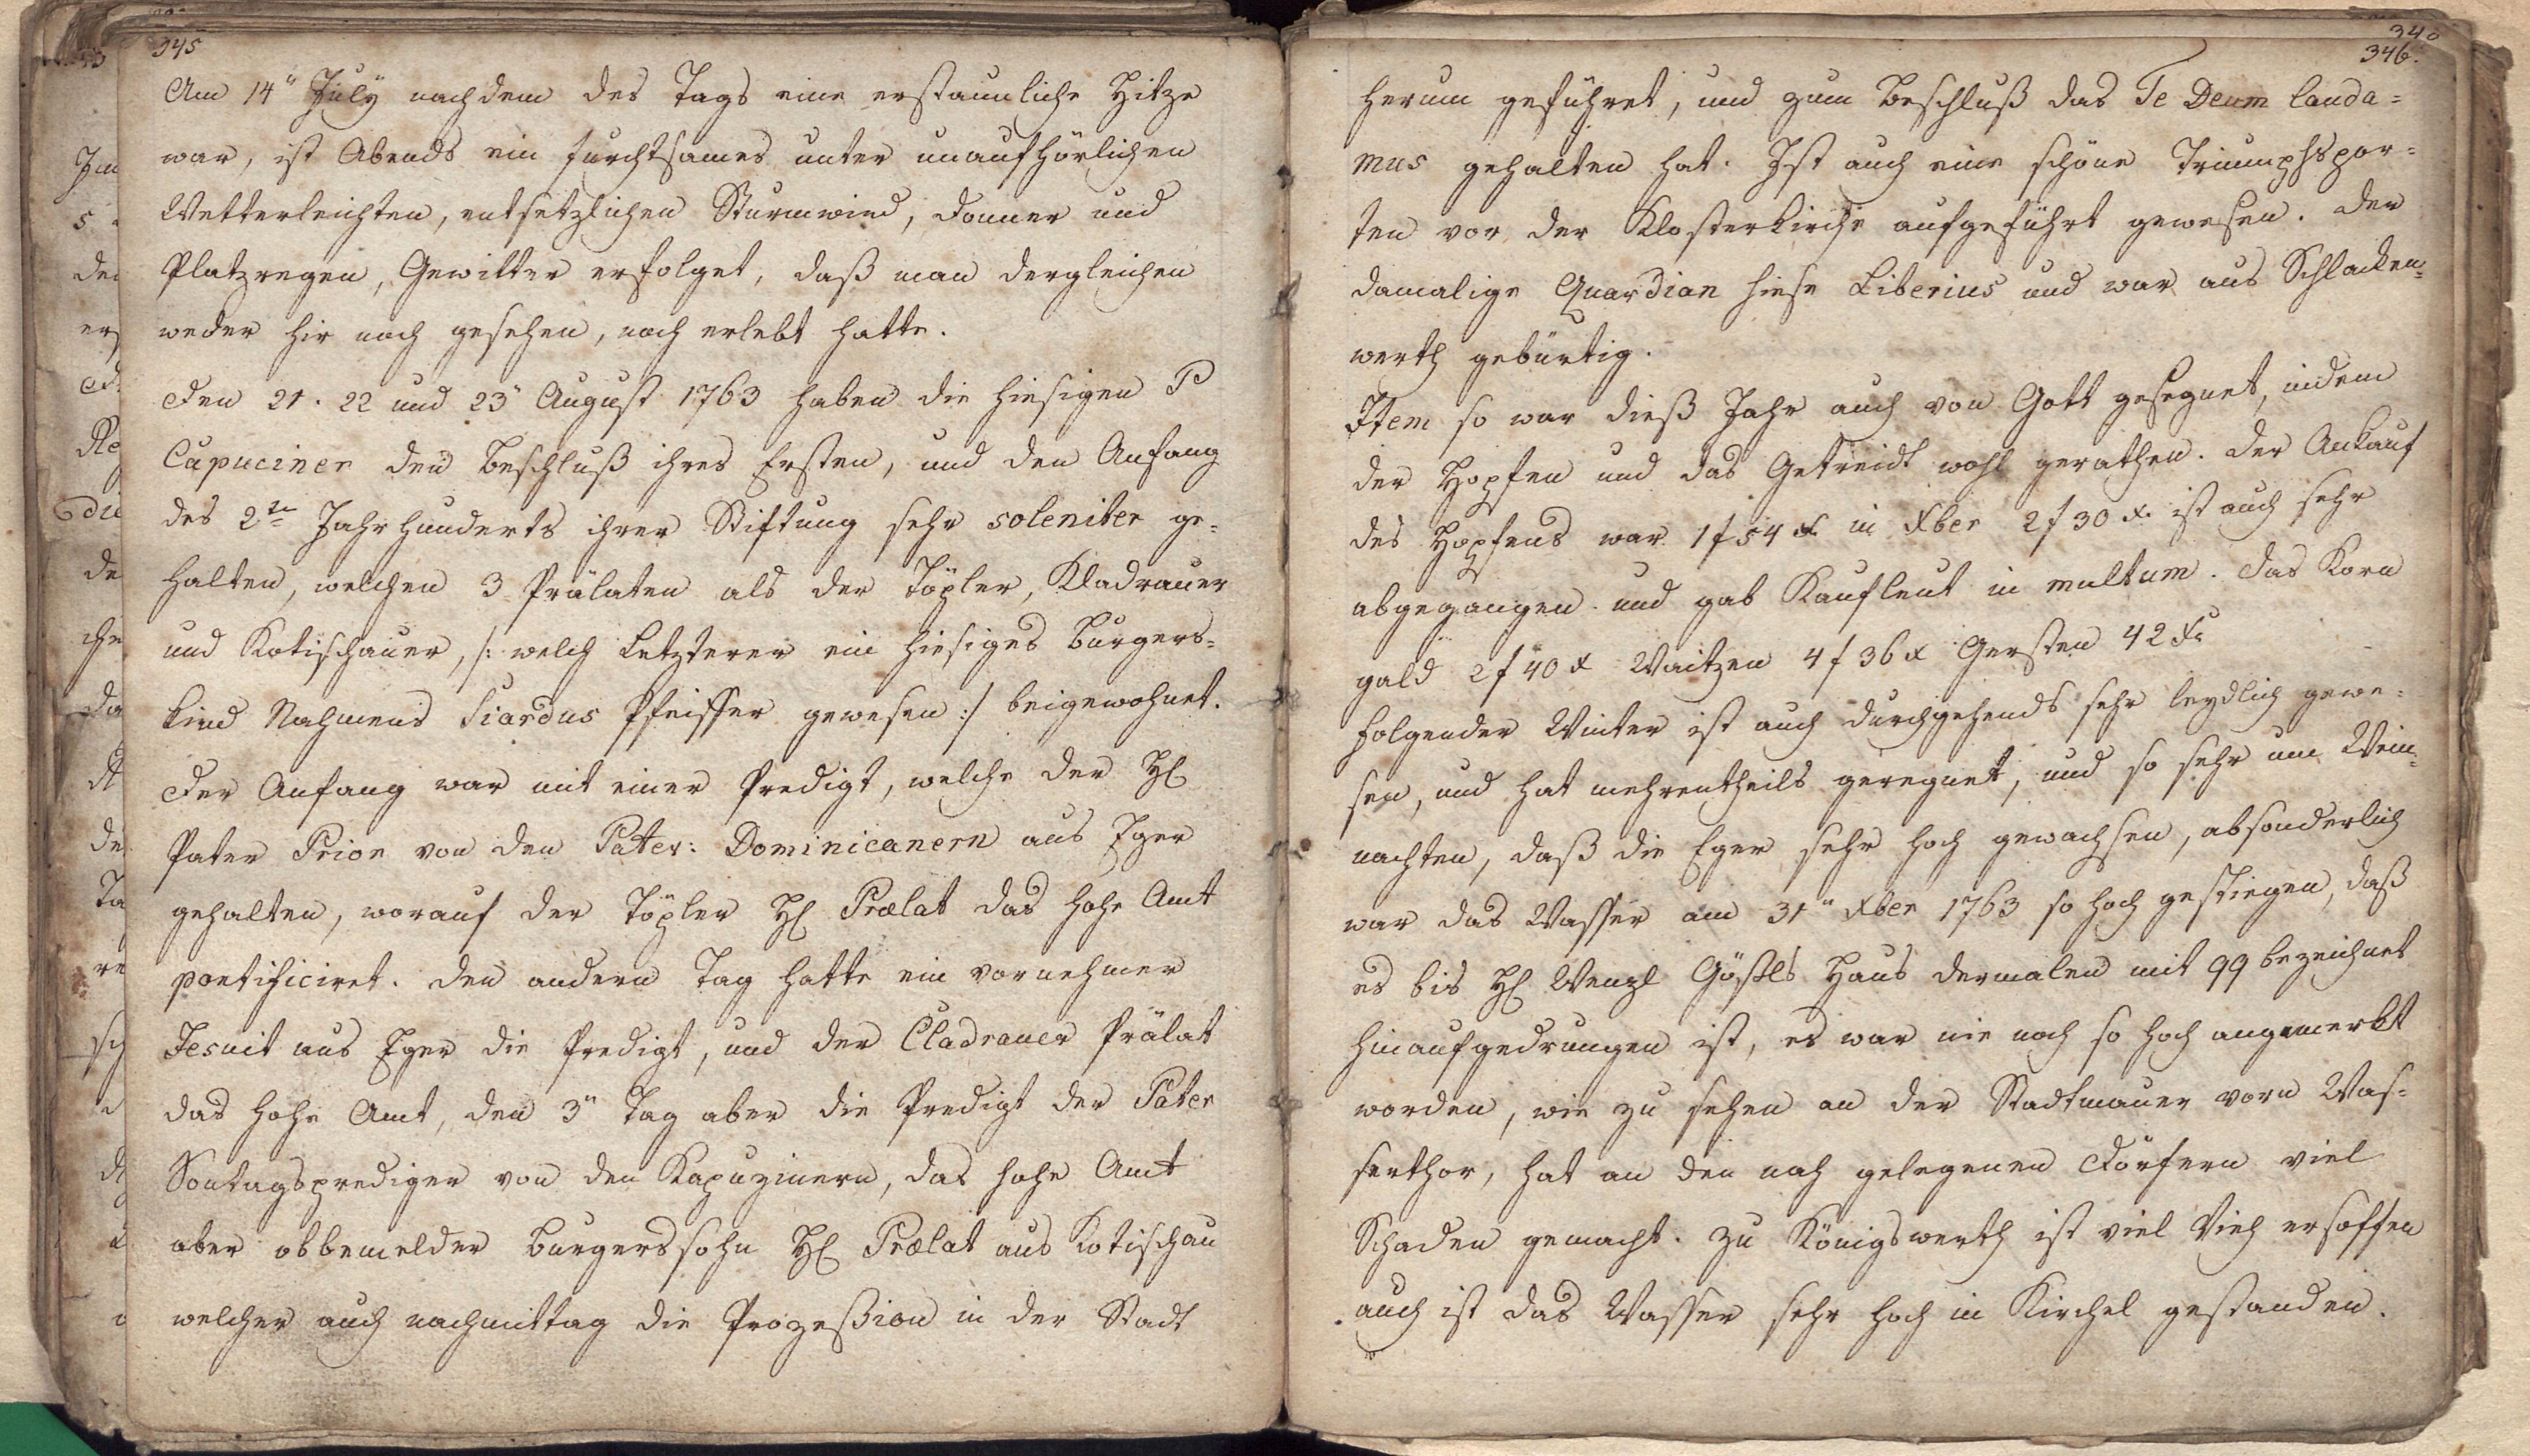 345
Am 14" July nachdem des Tags eine erstaunliche Hitze
war, ist Abends ein furchtsames unter unaufhörlichen
Wetterleichten, entsetzlichen Sturmwind, Donner und
Platzregen, Gewitter erfolget, daß man dergleichen
weder hir noch gesehen, noch erlebt hatte.
Den 21. 22 und 23" August 1763 haben die hiesigen P
Capuciner den Beschluß ihres Ersten, und den Anfang
des 2ten Jahrhunderts ihrer Stiftung sehr soleniter ge=
halten, welchen 3 Prälaten als der Töpler, Kladrauer
und Kotischauer, /: welch Letzterer ein hiesiges Burgers=
kind Nahmens Siardus Pfeiffer gewesen :/ beigewohnet.
Der Anfang war mit einer Predigt, welche der H
Pater Prior von den Pater: Dominicanern aus Eger
gehalten, worauf der Töpler H Prælat das hohe Amt
pontificiret. Den andern Tag hatte ein vornehmer
Jesuit aus Eger die Predigt, und der Cladrauer Prälat
das hohe Amt, den 3" Tag aber die Predigt der Pater
Sontagsprediger von den Kapuzinern, das hohe Amt
aber obbemelder Burgerssohn H Prælat aus Kotischau
welcher auch nachmittag die Prozeßion in der Stadt
346.
herum geführet, und zum Beschluß das Te Deum lauda=
mus gehalten hat. Ist auch eine schöne Triumphspor=
ten vor der Klosterkirche aufgeführt gewesen. Der
damalige Quardian hiese Liberius und war aus Schlacken=
werth gebürtig.
Item so war dieß Jahr auch von Gott gesegnet, indem
der Hopfen und das Getreidt wohl gerathen. Der Ankauf
des Hopfens war 1 f 54 x in Xber 2 f 30 x. ist auch sehr
abgegangen und gab Kaufleut in multum. Das Korn
gald 2 f 40 x Waitzen 4 f 36 x Gersten 42 x
Folgender Winter ist auch durchgehends sehr leydlich gewe=
sen, und hat mehrentheils geregnet, und so sehr um Wein=
nachten, daß die Eger sehr hoch gewachsen, absonderlich
war das Wasser am 31" Xber 1763 so hoch gestiegen, daß
es bis H Wenzl Gößls Haus dermalen mit 99 bezeichnet
hinaufgedrungen ist, es war nie noch so hoch angemerkt
worden, wie zu sehen an der Stadtmauer vorn Was=
serthor, hat an den nah gelegenen Dörfern viel
Schaden gemacht. Zu Königswerth ist viel Vieh ersoffen
auch ist das Wasser sehr hoch in Kirchel gestanden.